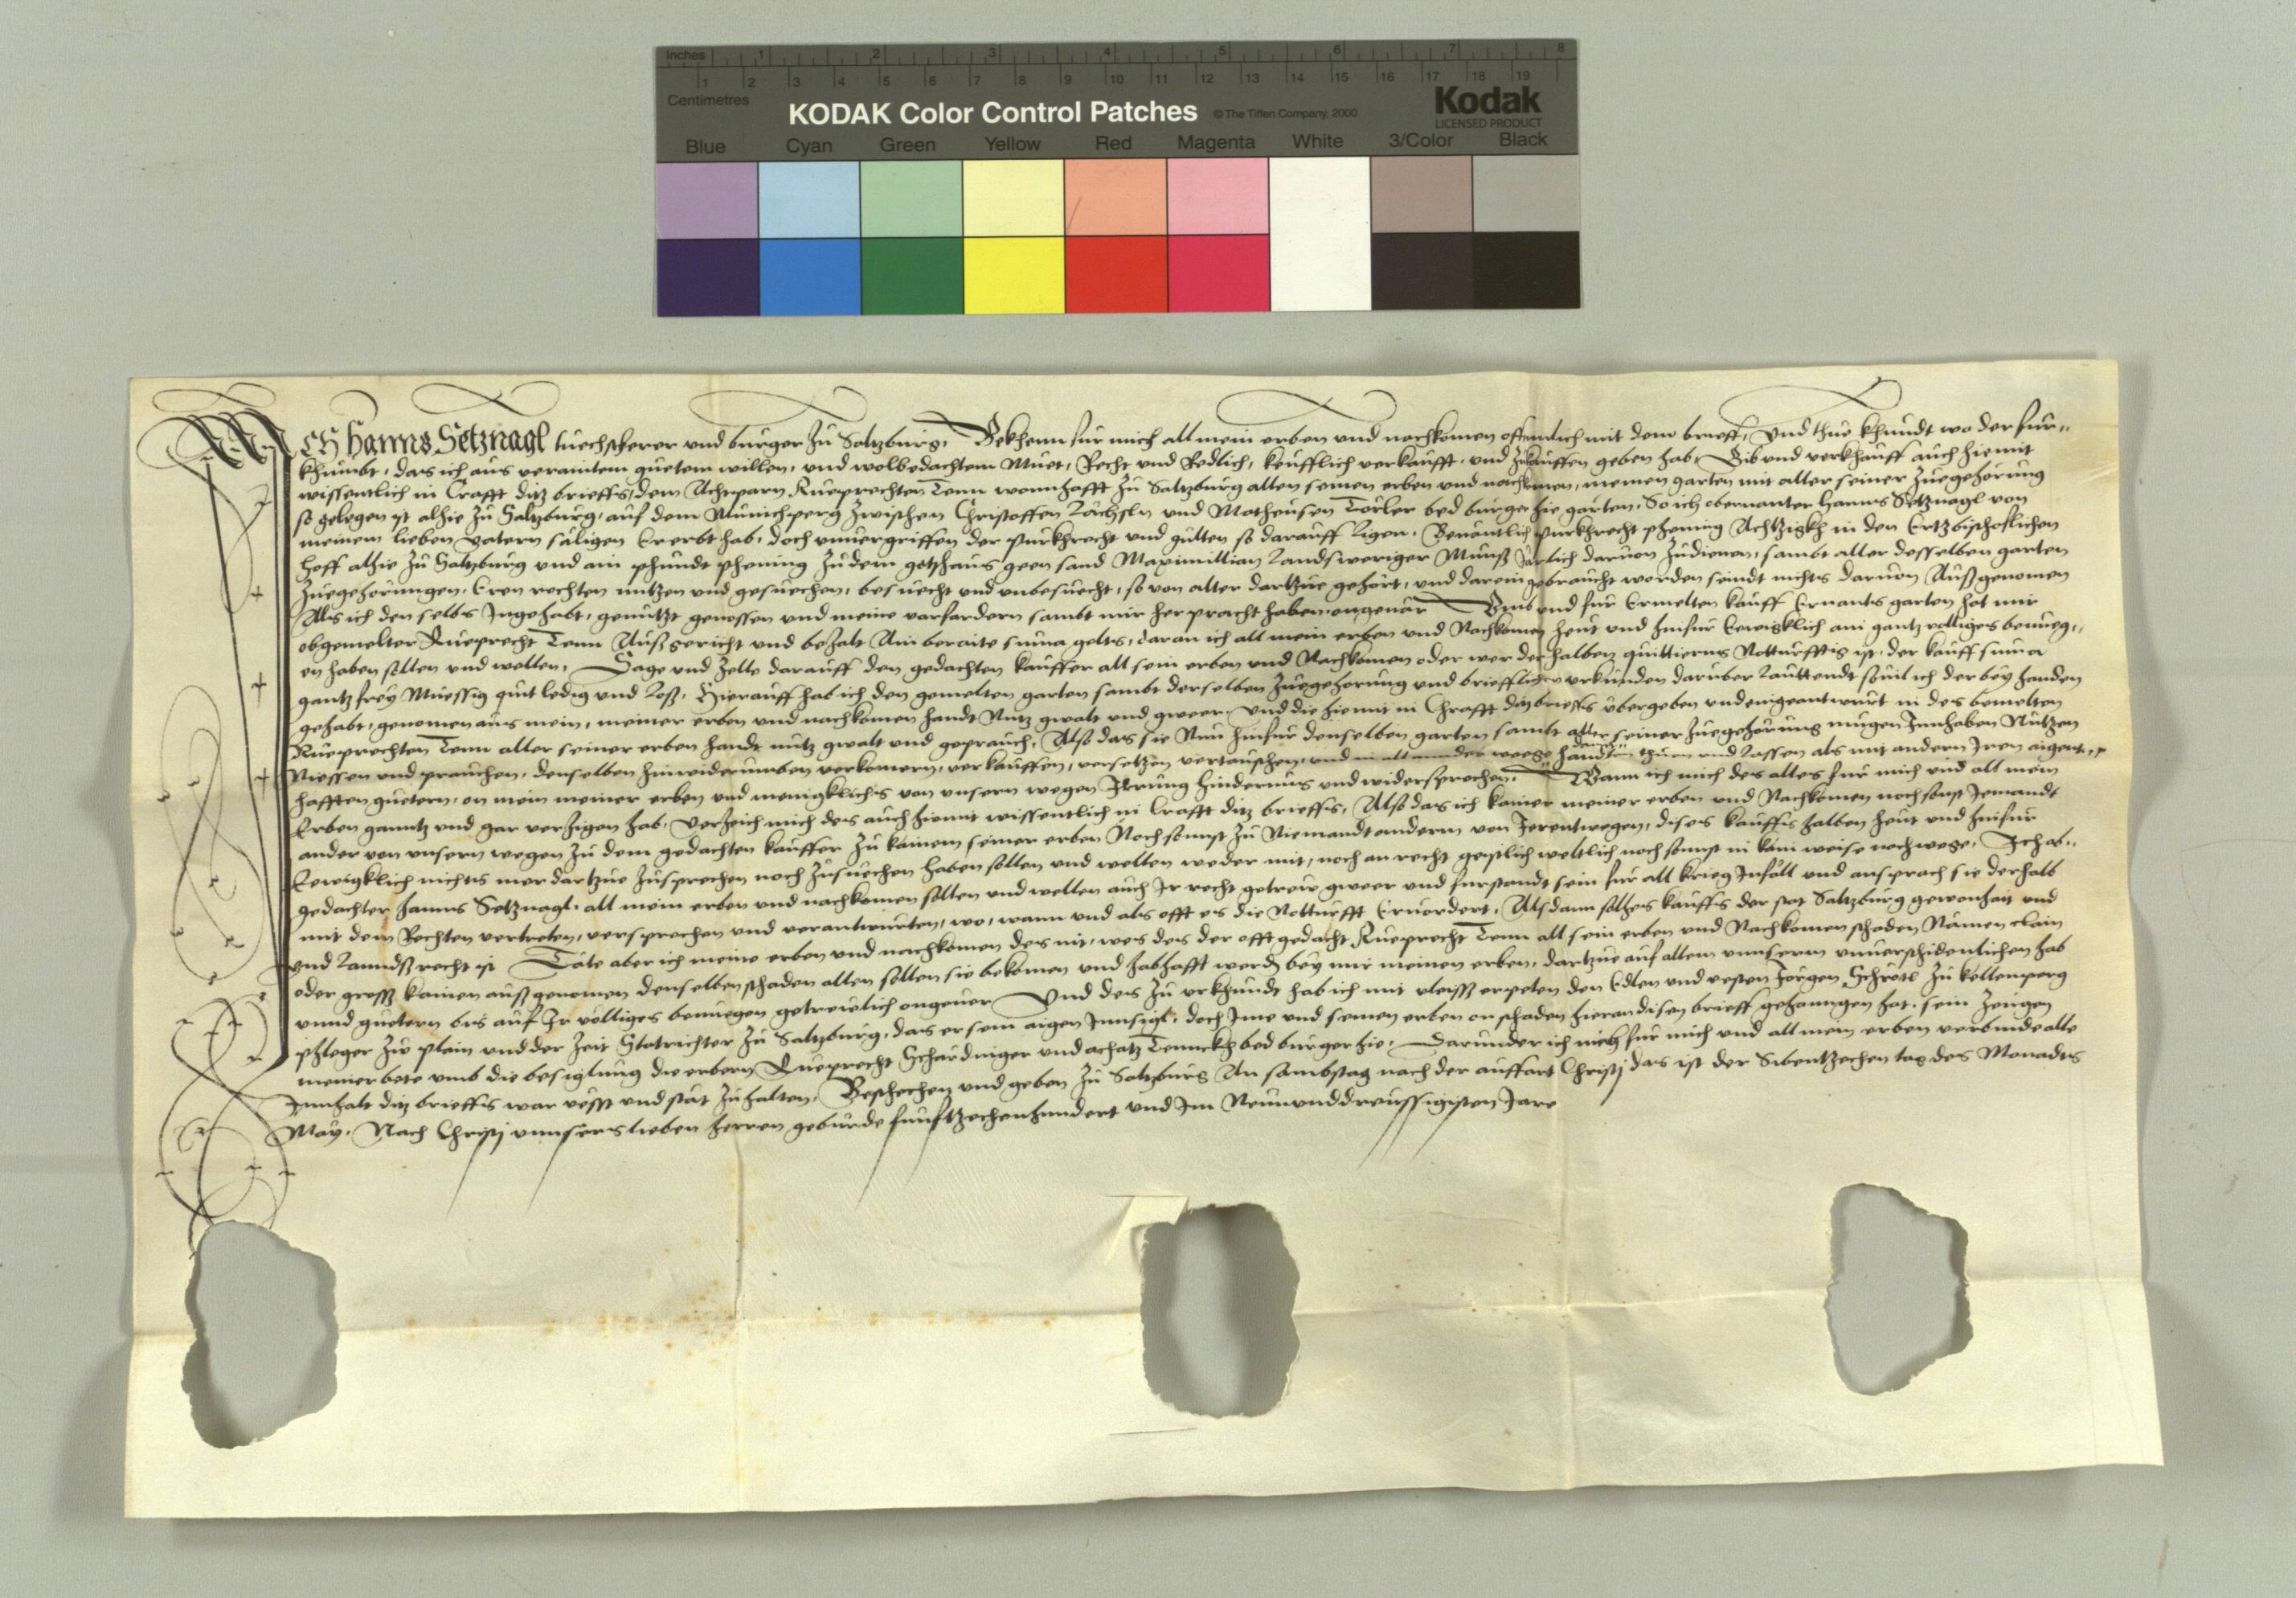 Inches 1 2 3 4 5 6 7 8
1 2 3 4 5 6 7 8 9 10 11 12 13 14 15 16 17 18 19
Centimetres
KODAK Color Control Patches © The Tiffen Company, 2000 Kodak
LICENSED PRODUCT
Blue Cyan Green Yellow Red Magenta White 3/Color Black
ICH Hanns Setznagl tuechscherer und burger zu Saltzburg, Bekhenn fur mich all mein erben und nachkomen offenlich mit dem brieff, Und thue khundt wo der fur„
khumbt, das ich aus veraintem guetem willen, und wolbedachtem Muet, Recht und Redlich, keufflich verkaufft, und zukauffen geben hab, Gib und verkhauff auch hiemit
wissentlich in Crafft ditz brieffs, dem Achparn Rueprechten Tenn wonnhafft zu Saltzburg allen seinen erben und nachkomen, meinen garten mit aller seiner zuegehorung
so gelegen ist alhie zu Saltzburg, auf dem Munichperg zwischen Christoffen und Matheusen Törler bed burger hie garten, So ich obernanter Hanns Setznagl von
meinem lieben Vatern säligen Ererbt hab, doch unvergriffen der purkhrecht und gülten so darauff ligen, Benäntlich purkhrecht phening Achtzigkh in den Ertzbischoflichen
hoff alhie zu Saltzburg und ain phundt phening zu dem gotzhaus geen sand Maximillian Landsweriger Münß Järlich daruon zudienen, sambt aller desselben garten
zuegehorungen, Eren rechten nutzen und gesuechen, besuecht und unbesuecht, so von alter dartzue gehört, und darein gebraucht worden seindt nichts daruon Außgenomen
Als ich den selbs Ingehabt, genützt genossen und meine vorfordern sambt mir herpracht haben ongeuär Umb und fur Ermelten kauff Ernants garten hat mir
obgemelter Rueprecht Tenn Außgericht und bezalt Ain beraite suma gelts, daran ich all mein erben und Nachkomen heut und hinfur Ewigklich ain gantz volligs benueg„
en haben sollen und wellen, Sage und zelle darauff den gedachten kauffer all sein erben und Nachkomen oder wer der halben quittierns Notturfftig ist, der kauff suma
gantz frey Muessig quit ledig und Loß, Hierauff hab ich den gemelten garten sambt derselben zuegehorung und brieflichen urkunden daruber Lauttendt souil ich der bey handen
gehabt, genomen aus mein, meiner erben und nachkomen handt Nutz gwalt und gweer, Und die hiemit in Chrafft ditz brieffs übergeben und eingeantwurt in des bemelten
Rueprechten Tenn aller seiner erben handt nutz gwalt und geprauch, Also das sie Nun hinfur denselben garten sambt aller seiner zuegehorung mugen Innhaben Nützen
Niessen und prauchen, denselben hinwiderumben verkomern, verkauffen, versetzen vertauschen, und in all ander weege handlen thuen und Lassen als mit andern Iren aigent„
hafften guetern, on mein meiner erben und menigklichs von unsern wegen Irrung hindernus und widersprechen, Wann ich mich des alles fur mich und all mein
Erben ganntz und gar verzigen hab, Verzeich mich des auch hiemit wissentlich in Crafft ditz brieffs, Also das ich kainer meiner erben und Nachkomen noch sonst Jemandt
ander von unsern wegen zu dem gedachten kauffer zu kainem seiner erben Noch sonnst zu Niemandt anderm von Jrentwegen, dises kauffs halben heut und hinfur
Ewigklich nichts mer dartzue zusprechen noch zusuechen haben sollen und wellen weder mit, noch on recht geistlich weltlich noch sonnst in kain weise noch wege, Ich ob„
gedachter Hanns Setznagl, all mein erben und nachkomen sollen und wellen auch Ir recht getreu gweer und furstandt sein fur all krieg Infäll und ansprach sie derhalb
mit dem Rechten vertreten, versprechen und verantwurten, wo, wann und als offt es die Notturfft Ervordert, Alsdann solhes kauffs der stat Saltzburg gewonhait und
und Lanndß recht ist Täte aber ich meine erben und nachkomen des nit, wes des der offtgedacht Rueprecht Tenn all sein erben und Nachkomen schaden Namen clain
oder groß kainen außgenomen denselben schaden allen sollen sie bekomen und habhafft werden bey mir meinen erben, dartzue auf allem unnserm unuerschidenlichen hab
unnd guetern bis auf Ir völligs benuegen getreulich ongeuer Und des zu urkhundt hab ich mit vleiß erpeten den Edlen und vesten Jörgen Schrötl zu kellenperg
phleger zu plain und der zeit Statrichter zu Saltzburg, das er sein aigen Innsigl, doch Ime und seinen erben on schaden hieran disen brieff gehanngen hat, sein zeugen
meiner bete umb die besiglung die erbern Rueprecht Schärdinger und achatz Tennckh bed burger hie, Darunder ich mich fur mich und all mein erben verbinde alle
Innhalt ditz brieffs war vesst und stät zu halten, Beschechen und geben zu Saltzburg An sambstag nach der auffart Christj das ist der Sibentzechen tag des Monadts
May, Nach Christj unnsers lieben herren geburde funfftzechenhundert und Im Neununddreissigisten Jare